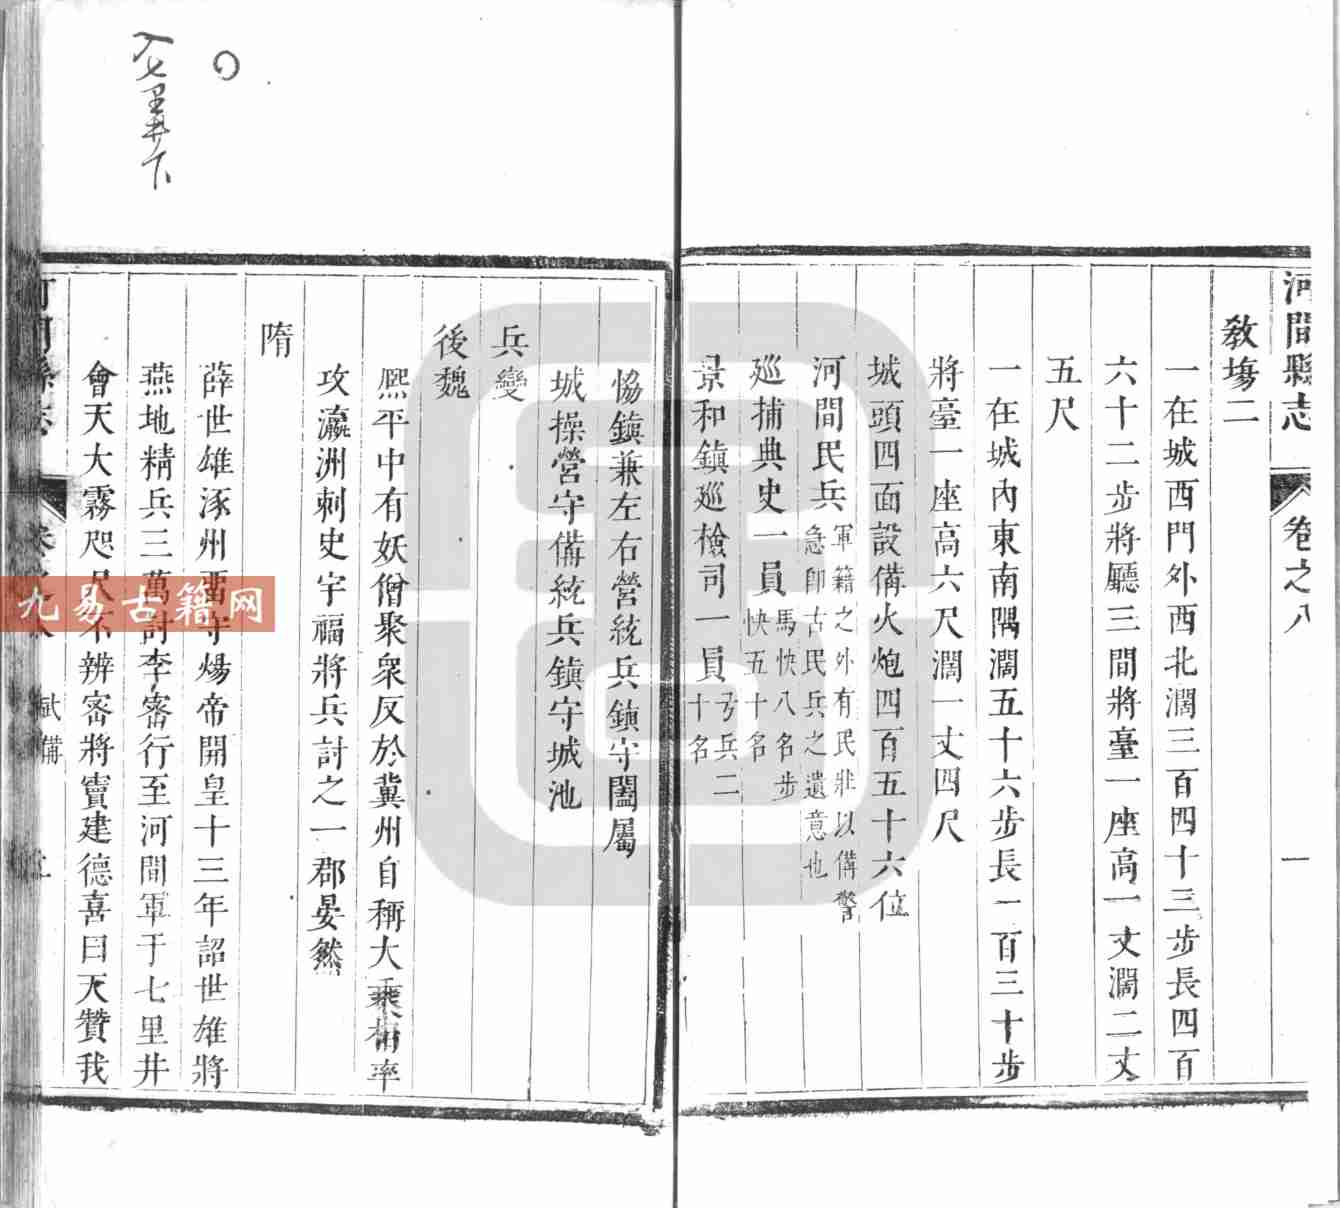 河間縣志
卷之八
一
教場二
一在城西門外西北濶三百四十三步長四百
六十二步將廳三間將臺一座高一丈濶二丈
五尺
一在城內東南隅濶五十六步長一百三十步
將臺一座高六尺濶一丈四尺
城頭四面設備火炮四百五十六位
河間民兵
軍籍之外有民壯以備警
急卽古民兵之遺意也
巡捕典史一員
馬快八名步
快五十名
景和鎮巡檢司一員
弓兵二
十名
恊鎮兼左右營統兵鎮守闔屬
城操營守備統兵鎮守城池
兵變
後魏
熙平中有妖僧聚衆反於冀州自稱大乘
率
攻瀛洲刺史宇福將兵討之一郡晏然
隋
薛世雄涿州留守煬帝開皇十三年詔世雄將
燕地精兵三萬討李密行至河間軍于七里井
會天大霧咫尺不辨密將竇建德喜曰天贊我
河間縣志
武備
九易古籍网
七里井下